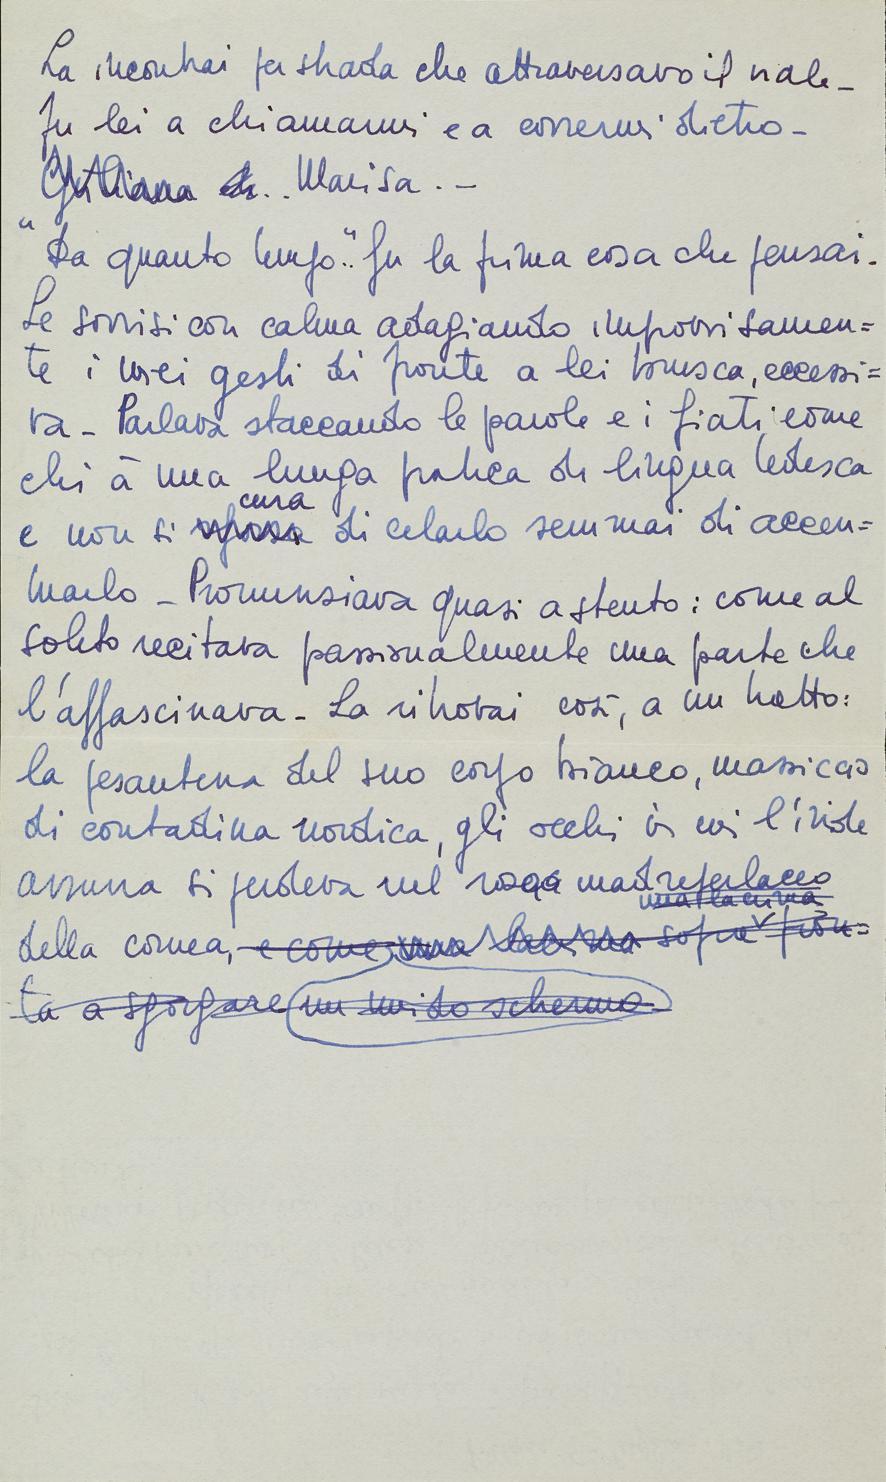 La incontrai per strada che attraversavo il viale –
fu lei a chiamarmi e a corrermi dietro –
Giuliana .. Marisa . –
"Da quanto tempo". Fu la prima cosa che pensai.
Le sorrisi con calma adagiando improvvisamen=
te i miei gesti di fronte a lei brusca, eccessi=
va – Parlava staccando le parole e i fiati come
chi à una lunga pratica di lingua tedesca
cura
e non si sforza di celarlo semmai di accen=
tuarlo – Pronunziava quasi a stento: come al
solito recitava passionalmente una parte che
l'affascinava – La ritrovai così, a un tratto:
la pesantezza del suo corpo bianco, massiccio
di contadina nordica, gli occhi in cui l'iride
azzurra si perdeva nel rosa madreperlaceo
una lacrima
della cornea, e come una lacrima sopra pron=
ta a sgorgare un umido schermo –